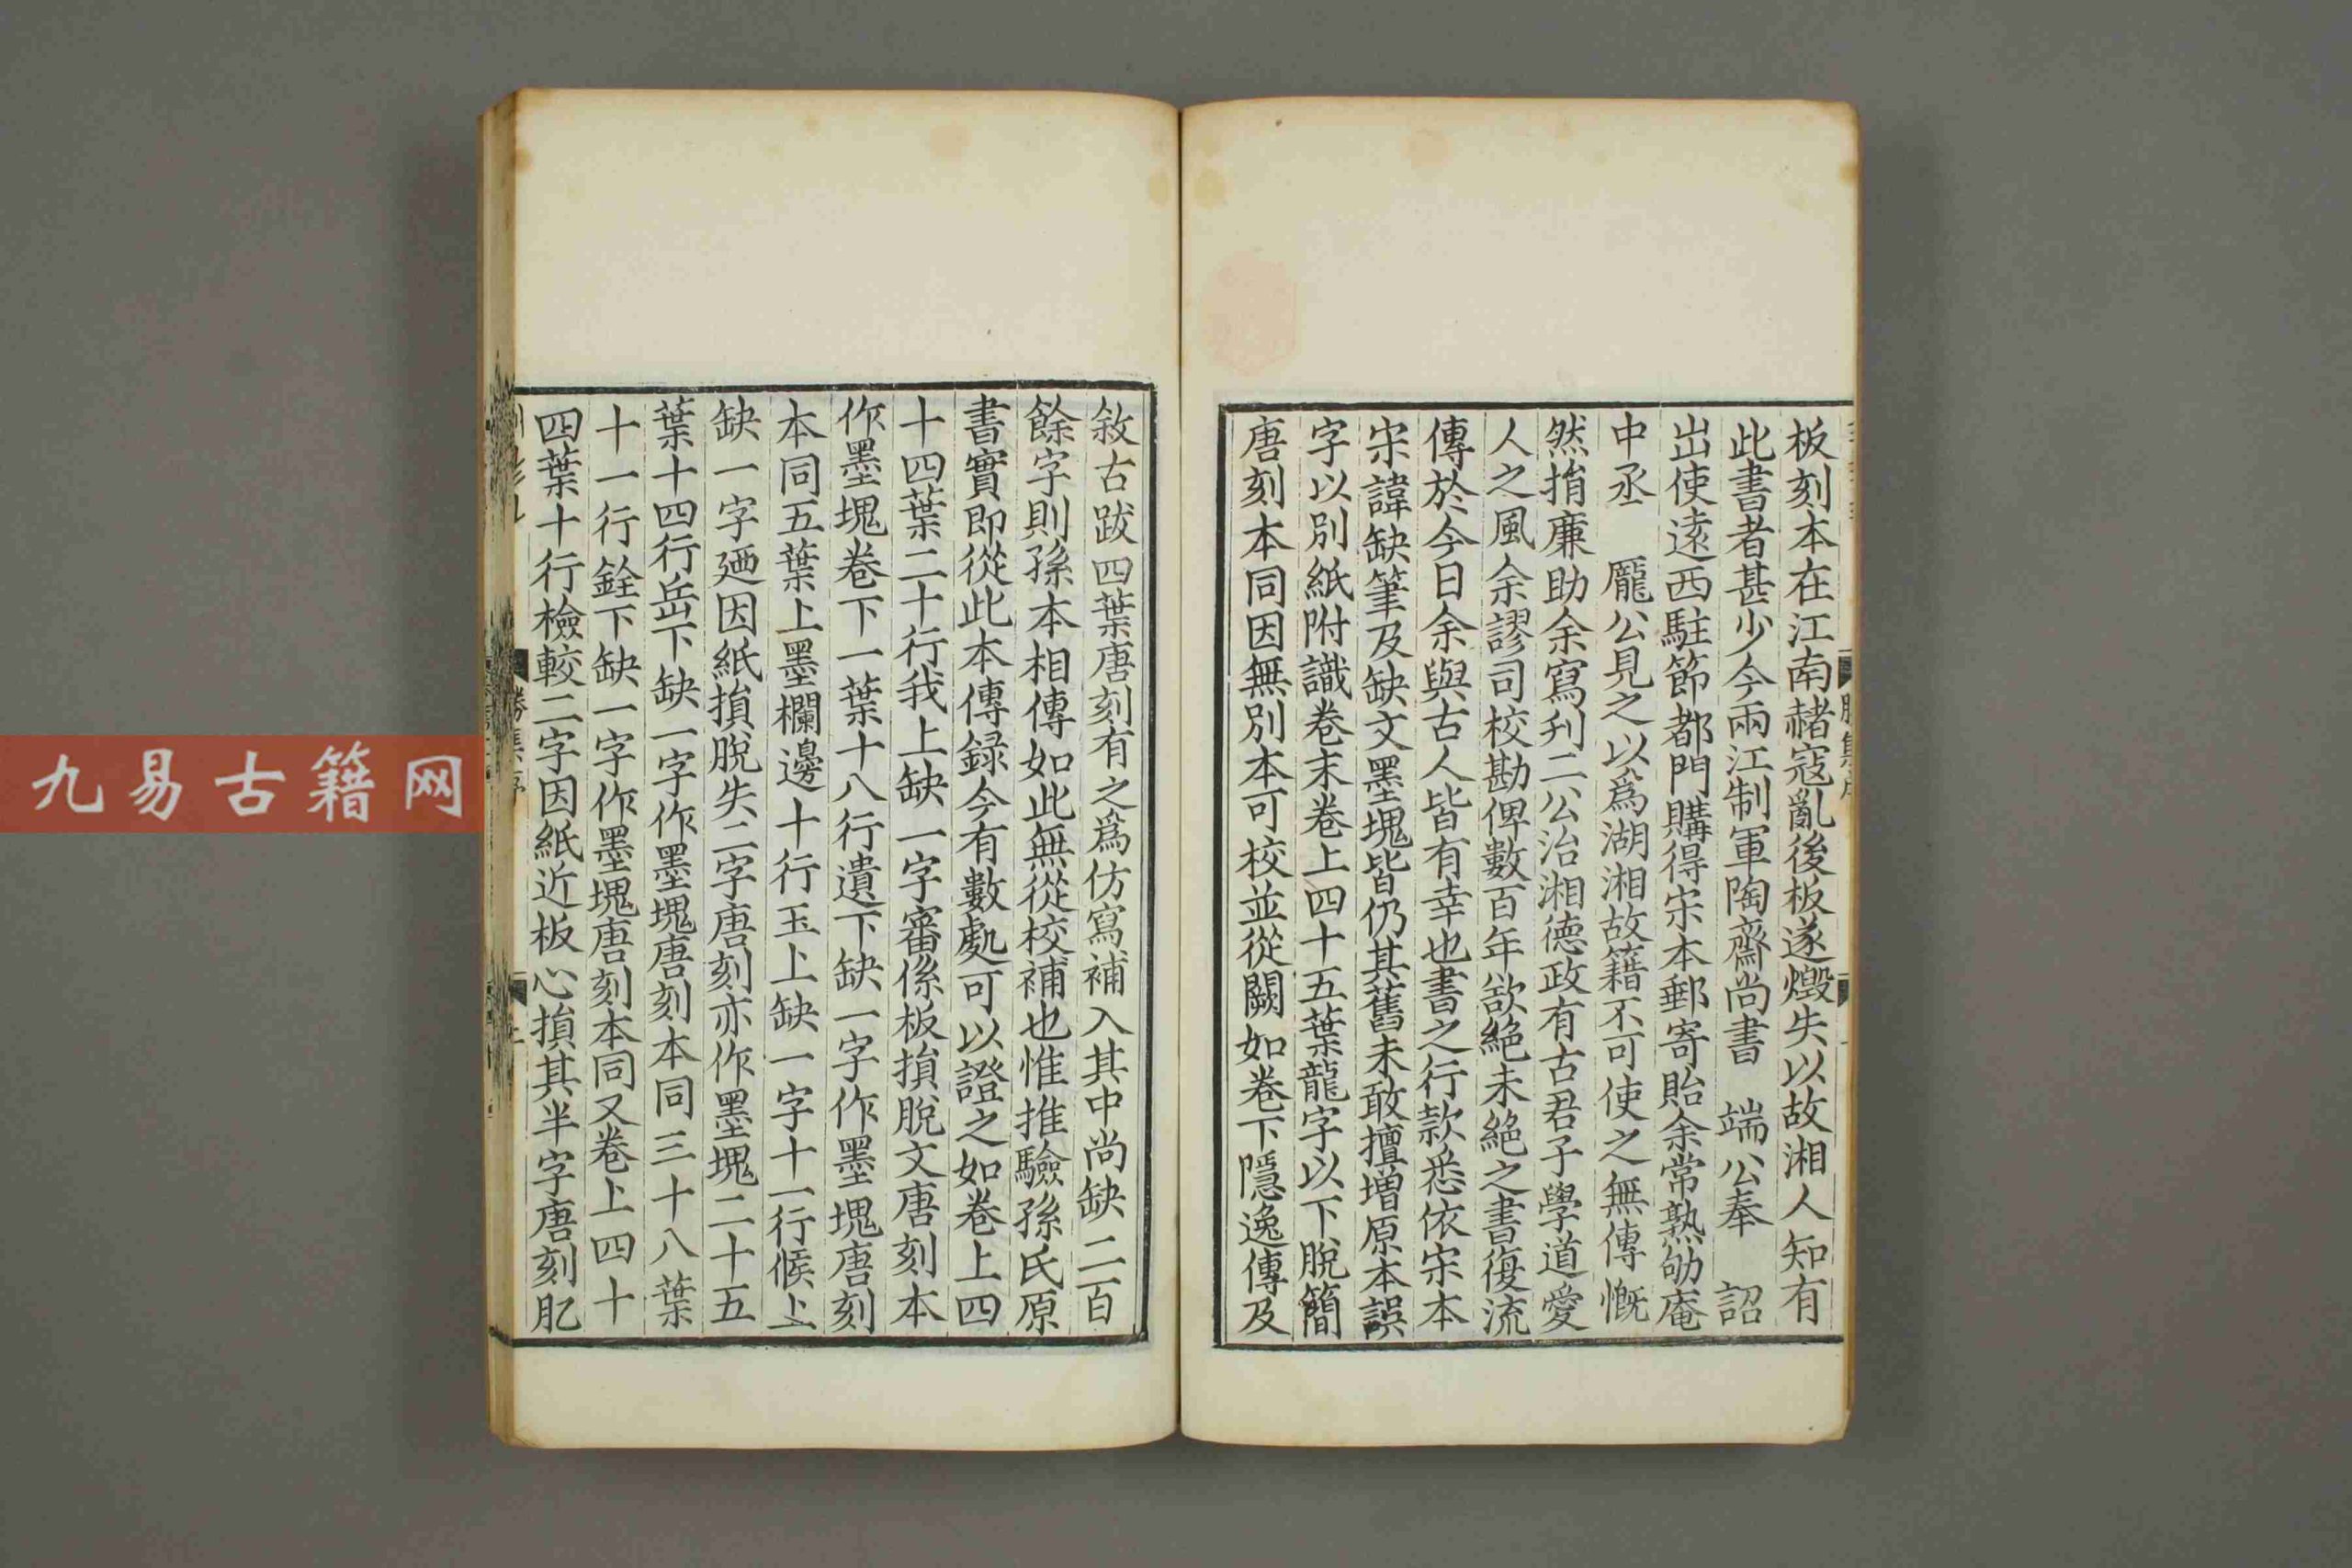 板刻本在江南赭寇亂後板遂燬失以故湘人知有
此書者甚少今兩江制軍陶齋尚書 端公奉 詔
出使遠西駐節都門購得宋本郵寄貽余常熟劬庵
中丞 龐公見之以爲湖湘故籍不可使之無傳慨
然捐廉助余寫刋二公治湘德政有古君子學道愛
人之風余謬司校勘俾數百年欲絕未絕之書復流
傳於今日余與古人皆有幸也書之行款悉依宋本
宋諱缺筆及缺文墨塊皆仍其舊未敢擅增原本誤
字以別紙附識卷末卷上四十五葉龍字以下脫簡
唐刻本同因無別本可校並從闕如卷下隱逸傳及
敘古跋四葉唐刻有之爲仿寫補入其中尚缺二百
餘字則孫本相傳如此無從校補也惟推驗孫氏原
書實即從此本傳録今有數處可以證之如卷上四
十四葉二十行我上缺一字審係板損脫文唐刻本
作墨塊卷下一葉十八行遺下缺一字作墨塊唐刻
本同五葉上墨欄邊十行玉上缺一字十一行候上
缺一字廼因紙損脫失二字唐刻亦作墨塊二十五
葉十四行岳下缺一字作墨塊唐刻本同三十八葉
十一行銓下缺一字作墨塊唐刻本同又卷上四十
四葉十行檢較二字因紙近板心損其半字唐刻肊
勝集序
九易古籍网